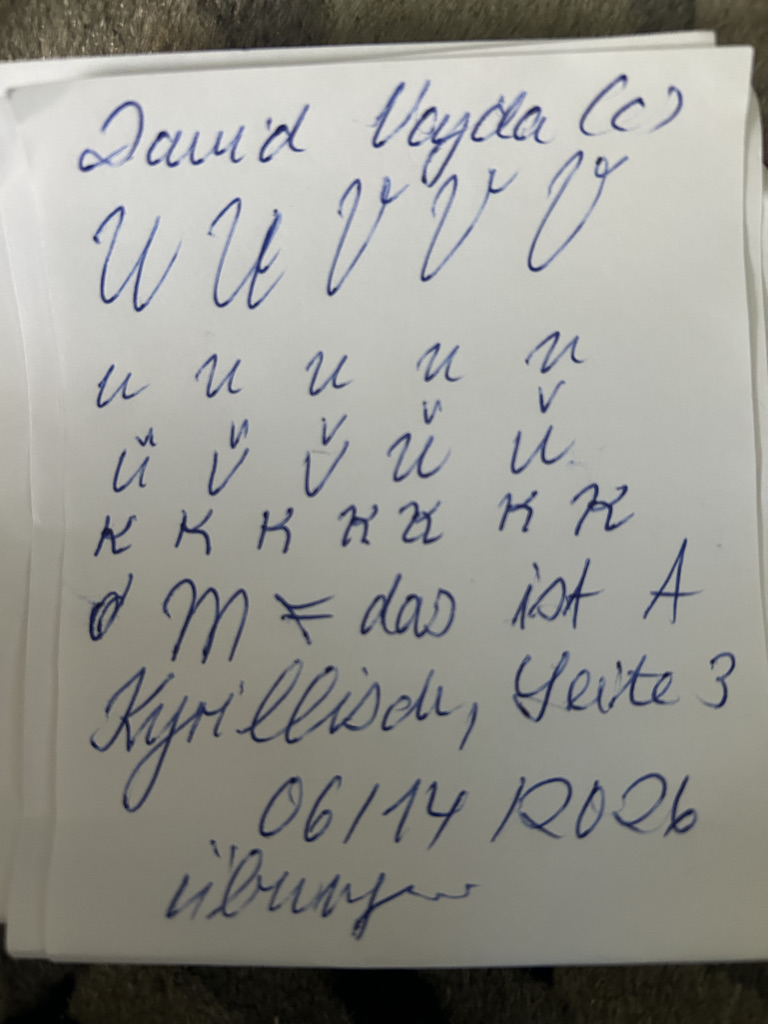 David Vajda (c)
И И V V V
и и и и и
й й й й й
к к к к к к к
M das ist A
Kyrillisch, Seite 3
06/14/2026
Übungen